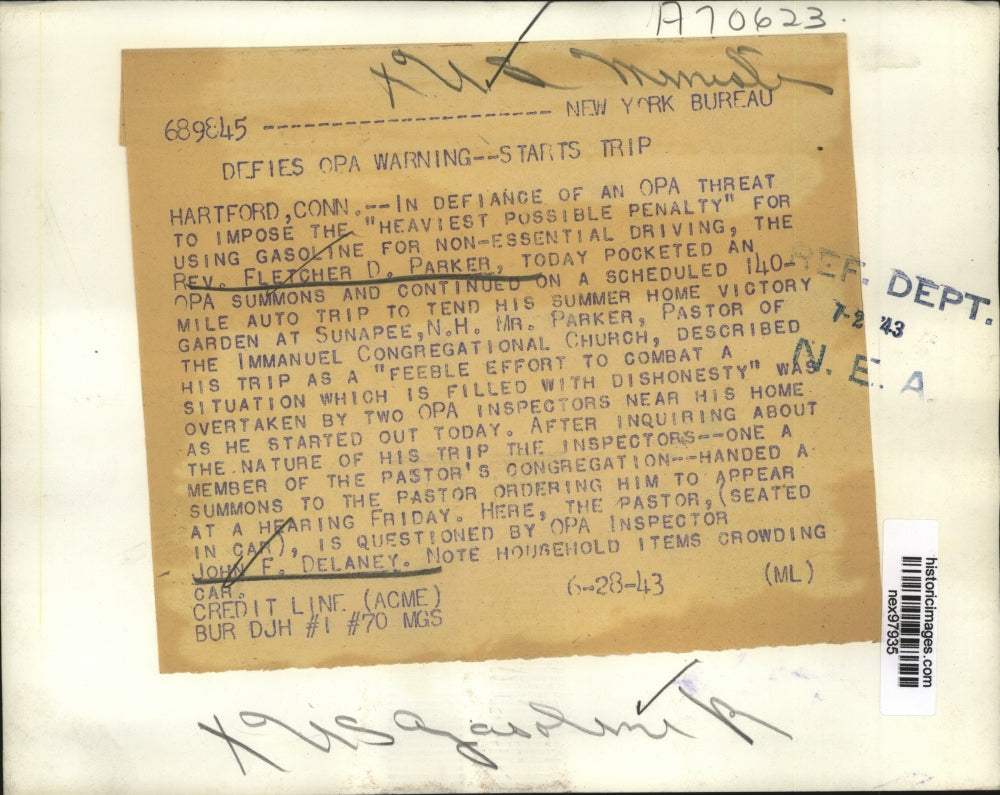 A70623.
X U.S. Ministers
689845 -------------------- NEW YORK BUREAU
DEFIES OPA WARNING--STARTS TRIP
HARTFORD,CONN.--IN DEFIANCE OF AN OPA THREAT
TO IMPOSE THE "HEAVIEST POSSIBLE PENALTY" FOR
USING GASOLINE FOR NON-ESSENTIAL DRIVING, THE
REV. FLETCHER D. PARKER, TODAY POCKETED AN
OPA SUMMONS AND CONTINUED ON A SCHEDULED 140-
MILE AUTO TRIP TO TEND HIS SUMMER HOME VICTORY
GARDEN AT SUNAPEE,N.H. MR. PARKER, PASTOR OF
THE IMMANUEL CONGREGATIONAL CHURCH, DESCRIBED
HIS TRIP AS A "FEEBLE EFFORT TO COMBAT A
SITUATION WHICH IS FILLED WITH DISHONESTY" WAS
OVERTAKEN BY TWO OPA INSPECTORS NEAR HIS HOME
AS HE STARTED OUT TODAY. AFTER INQUIRING ABOUT
THE NATURE OF HIS TRIP THE INSPECTORS--ONE A
MEMBER OF THE PASTOR'S CONGREGATION--HANDED A
SUMMONS TO THE PASTOR ORDERING HIM TO APPEAR
AT A HEARING FRIDAY. HERE, THE PASTOR, (SEATED
IN CAR), IS QUESTIONED BY OPA INSPECTOR
JOHN F. DELANEY. NOTE HOUSEHOLD ITEMS CROWDING
CAR.
CREDIT LINE (ACME) 6-28-43 (ML)
BUR DJH #1 #70 MGS
REF. DEPT.
7-2 '43
N. E. A.
historicimages.com
nex97935
X US Gasoline R